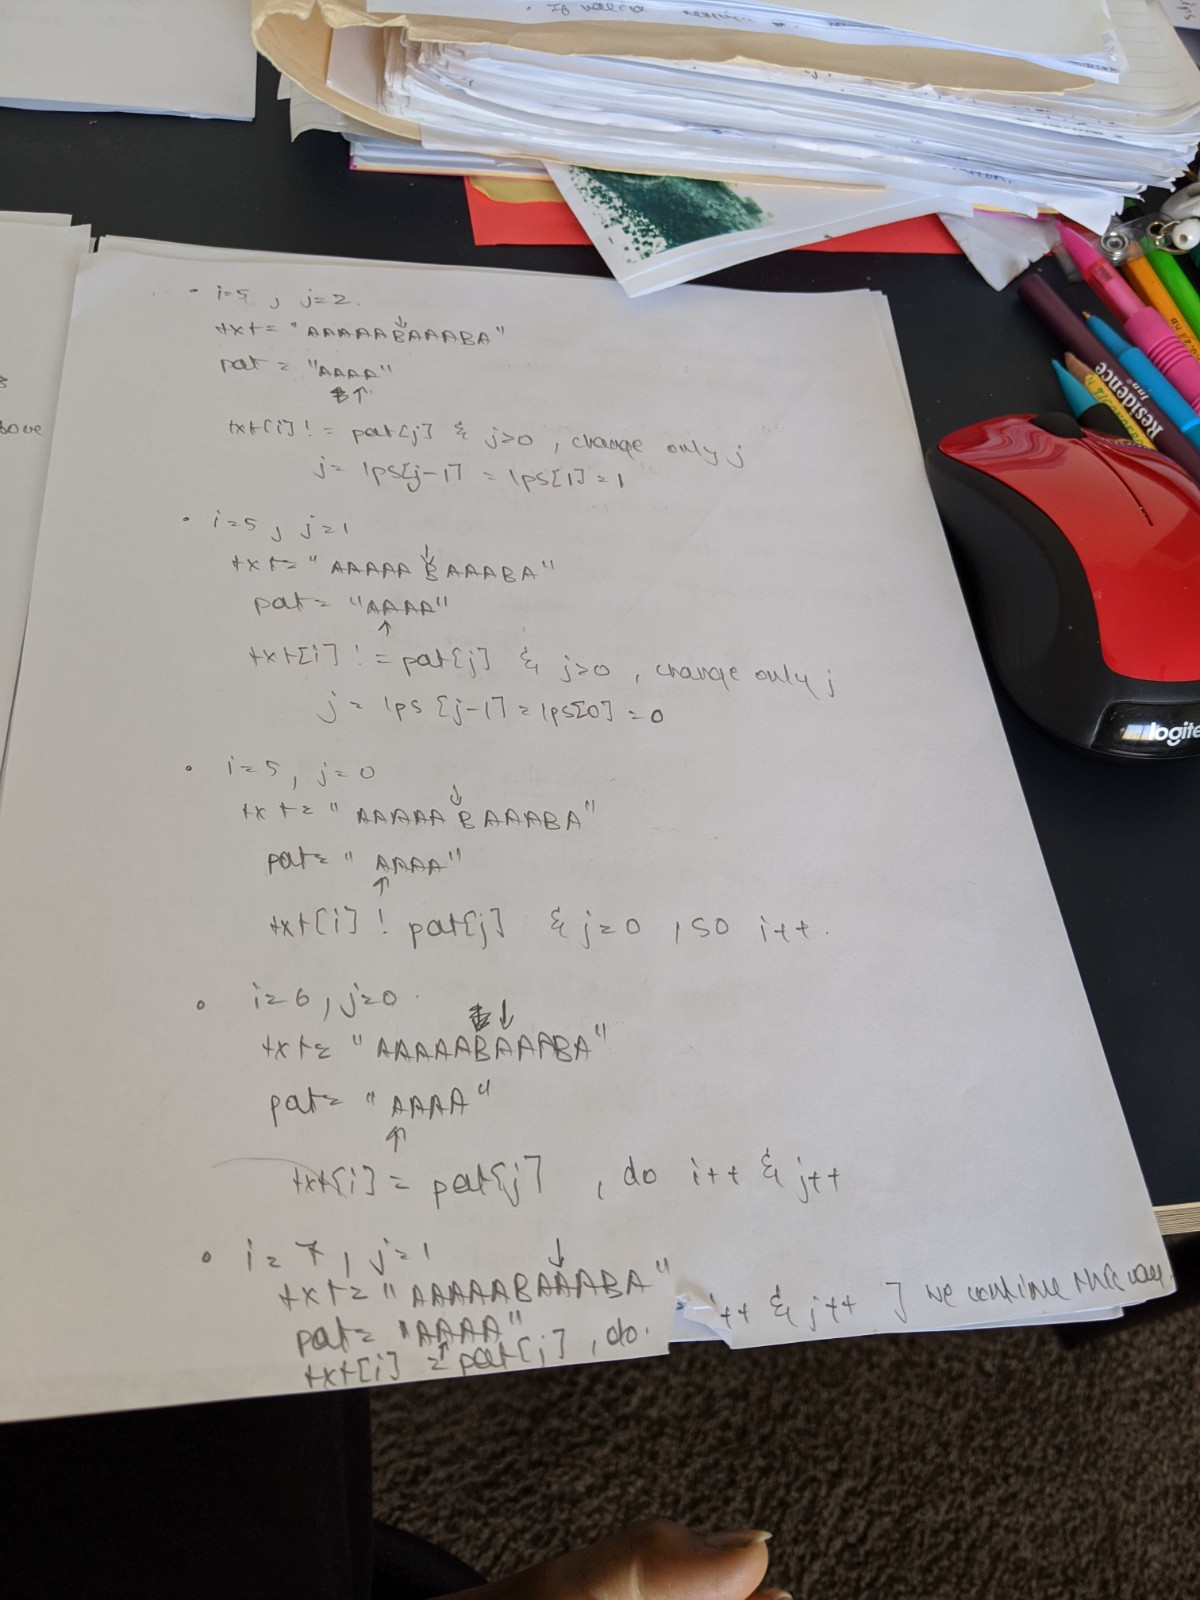 • If
• i=5, j=2.
txt = "AAAAABAAABA"
pat = "AAAA"
txt[i] != pat[j] & j>0, change only j
j = lps[j-1] = lps[1] = 1
• i=5, j=1
txt = "AAAAABAAABA"
pat = "AAAA"
txt[i] != pat[j] & j>0, change only j
j = lps[j-1] = lps[0] = 0
• i=5, j=0
txt = "AAAAABAAABA"
pat = "AAAA"
txt[i] ! pat[j] & j=0, so i++.
• i=6, j=0
txt = "AAAAABAAABA"
pat = "AAAA"
txt[i] = pat[j], do i++ & j++
• i=7, j=1
txt = "AAAAABAAABA"
pat = "AAAA"
txt[i] = pat[j], do. i++ & j++ ] we continue this way.
Residence
Inn
logite